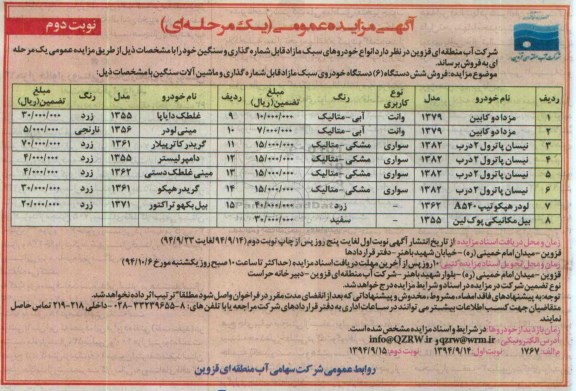 آگهی مزایده عمومی (یک مرحله ای)
نوبت دوم
شرکت آب منطقه ای قزوین در نظر دارد انواع خودروهای سبک مازاد قابل شماره گذاری و سنگین خود را با مشخصات ذیل از طریق مزایده عمومی یک مرحله
ای به فروش برساند.
موضوع مزایده: فروش شش دستگاه (۶) دستگاه خودروی سبک مازاد قابل شماره گذاری و ماشین آلات سنگین با مشخصات ذیل:
ردیف نام خودرو مدل نوع کاربری رنگ مبلغ تضمین(ریال) ردیف نام خودرو مدل رنگ مبلغ تضمین(ریال)
۱ مزدا دو کابین ۱۳۷۹ وانت آبی-متالیک ۱۰/۰۰۰/۰۰۰ ۹ غلطک دایاپا ۱۳۵۵ زرد ۳۰/۰۰۰/۰۰۰
۲ مزدا دو کابین ۱۳۷۹ وانت آبی-متالیک ۷/۰۰۰/۰۰۰ ۱۰ مینی لودر ۱۳۵۶ نارنجی ۵/۰۰۰/۰۰۰
۳ نیسان پاترول ۲ درب ۱۳۸۲ سواری مشکی-متالیک ۱۵/۰۰۰/۰۰۰ ۱۱ گریدر کاترپیلار ۱۳۶۱ زرد ۷۰/۰۰۰/۰۰۰
۴ نیسان پاترول ۲ درب ۱۳۸۲ سواری مشکی-متالیک ۱۵/۰۰۰/۰۰۰ ۱۲ دامپر لیستر ۱۳۵۵ زرد ۴/۰۰۰/۰۰۰
۵ نیسان پاترول ۲ درب ۱۳۸۲ سواری مشکی-متالیک ۱۵/۰۰۰/۰۰۰ ۱۳ مینی غلطک دستی ۱۳۶۲ زرد ۴/۰۰۰/۰۰۰
۶ نیسان پاترول ۲ درب ۱۳۸۲ سواری مشکی-متالیک ۱۵/۰۰۰/۰۰۰ ۱۴ گریدر هپکو ۱۳۶۱ زرد ۳۰/۰۰۰/۰۰۰
۷ لودر هپکو تیپ A۵۴۰ ۱۳۶۲ - زرد ۴۰/۰۰۰/۰۰۰ ۱۵ بیل بکهو تراکتور ۱۳۷۱ زرد ۲۰/۰۰۰/۰۰۰
۸ بیل مکانیکی پوک لین ۱۳۵۵ - سفید ۳۰/۰۰۰/۰۰۰
زمان و محل دریافت اسناد مزایده: از تاریخ انتشار آگهی نوبت اول لغایت پنج روز پس از چاپ نوبت دوم (۹۴/۹/۱۴ لغایت ۹۴/۹/۲۳)
قزوین-میدان امام خمینی (ره)-خیابان شهید باهنر-دفتر قراردادها
زمان و محل تحویل اسناد مزایده کتبی: ۱۰ روز پس از آخرین مهلت دریافت اسناد مزایده (حداکثر تا ساعت ۱۰ صبح روز یکشنبه مورخ ۹۴/۱۰/۶)
قزوین-میدان امام خمینی (ره)-بلوار شهید باهنر-شرکت آب منطقه ای قزوین-دبیرخانه حراست
نوع تضمین شرکت در مزایده در اسناد و شرایط مزایده درج خواهد شد.
توجه: به پیشنهادهای فاقد امضاء، مشروط، مخدوش و پیشنهاداتی که بعد از انقضای مدت مقرر در فراخوان واصل شود مطلقا" ترتیب اثر داده نخواهد شد.
متقاضیان جهت کسب اطلاعات بیشتر می توانند در ساعات اداری به دفتر قراردادهای شرکت مراجعه یا با تلفن های: ۸-۳۳۲۳۹۶۵۵-۰۲۸ داخلی ۲۱۸-۲۱۹ تماس حاصل
نمایند.
زمان بازدید از خودروها: در شرایط و اسناد مزایده مشخص شده است.
آدرس الکترونیکی: qzrw@wrm.ir و info@QZRW.ir
۱۷۶۷ نوبت اول: ۱۳۹۴/۹/۱۴ نوبت دوم: ۱۳۹۴/۹/۱۵
روابط عمومی شرکت سهامی آب منطقه ای قزوین